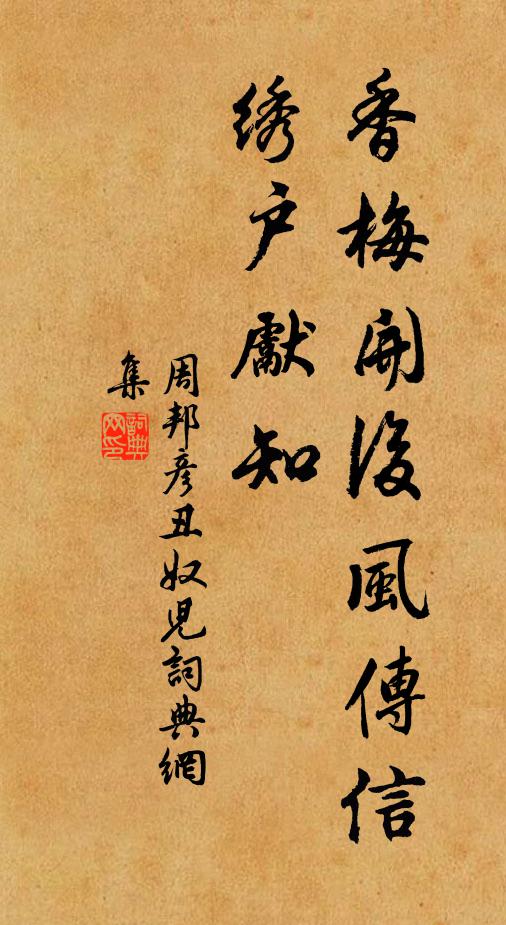 香梅開後風傳信
绣户獻知
周邦彦丑奴兒詞典網
集
詞典
网印